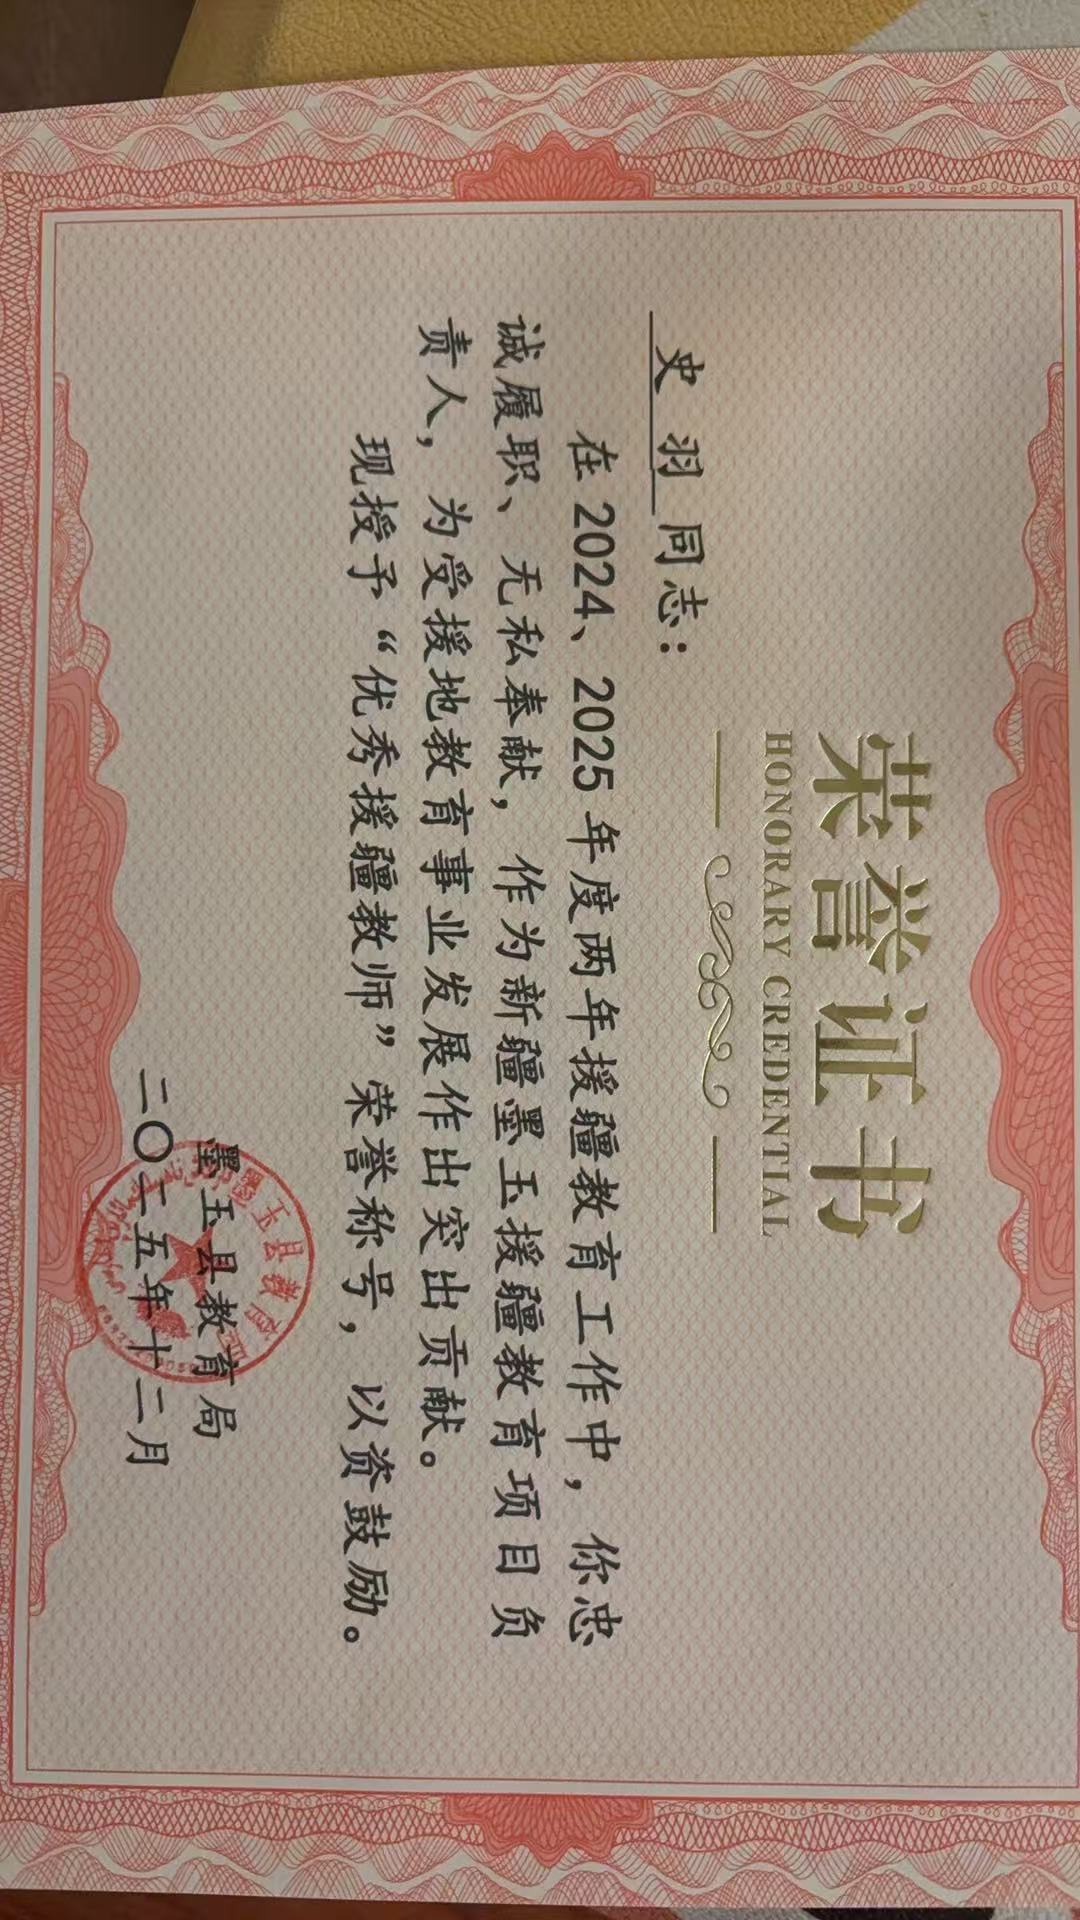 荣誉证书
HONORARY CREDENTIAL
史 羽 同志：
在 2024、2025 年度两年援疆教育工作中，你忠
诚履职、无私奉献，作为新疆墨玉援疆教育项目负
责人，为受援地教育事业发展作出突出贡献。
现授予“优秀援疆教师”荣誉称号，以资鼓励。
墨玉县教育局
二〇二五年十二月